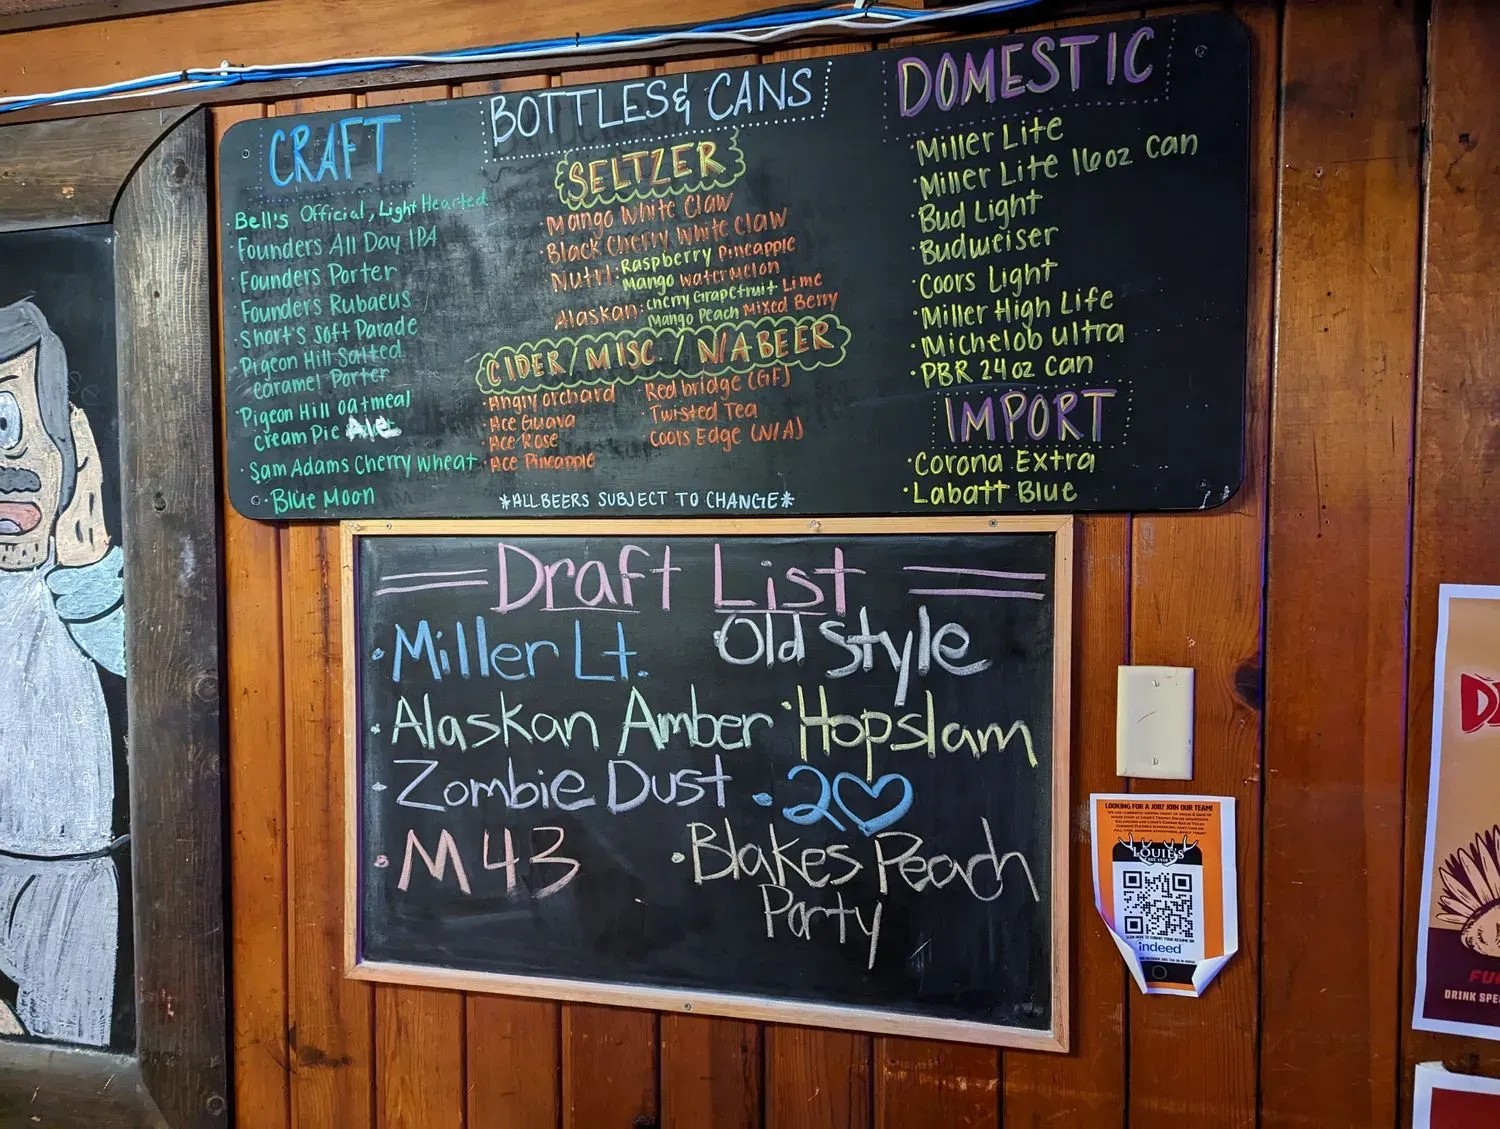 BOTTLES & CANS
CRAFT
Bell's Official, Light Hearted
Founders All Day IPA
Founders Porter
Founders Rubaeus
Short's Soft Parade
Pigeon Hill Salted
caramel Porter
Pigeon Hill oatmeal
cream Pie Ale
Sam Adams Cherry Wheat
Blue Moon
SELTZER
Mango White Claw
Black Cherry White Claw
Nutrl: Raspberry Pineapple
Mango Watermelon
Alaskan: Cherry Grapefruit Lime
Mango Peach Mixed Berry
CIDER / MISC. / N/A BEER
Angry orchard
Ace Guava
Ace Rose
Ace Pineapple
Redbridge (GF)
Twisted Tea
Coors Edge (N/A)
*ALL BEERS SUBJECT TO CHANGE*
DOMESTIC
Miller Lite
Miller Lite 16oz can
Bud Light
Budweiser
Coors Light
Miller High Life
Michelob Ultra
PBR 24oz can
IMPORT
Corona Extra
Labatt Blue
Draft List
Miller Lt.
Alaskan Amber
Zombie Dust
M43
Old Style
Hopslam
2♡
Blakes Peach
Party
LOOKING FOR A JOB? JOIN OUR TEAM!
LOUIE'S
indeed
DRINK SPE